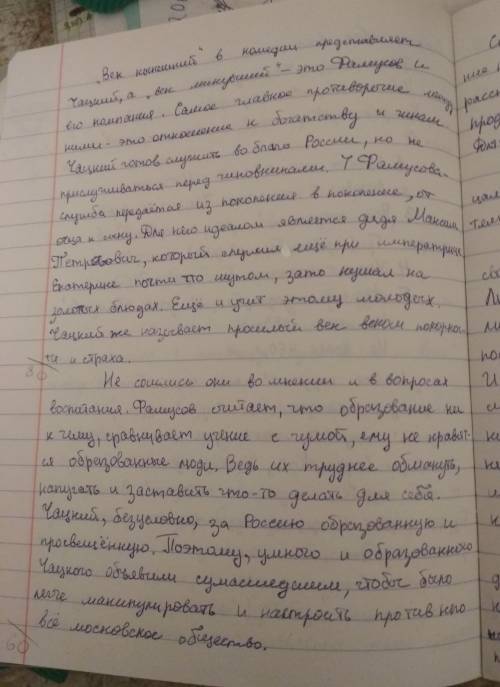 „Век нынешний" в комедии представляет
Чацкий, а „век минувший" – это Фамусов и
его компания. Самое главное противоречие между
ними - это отношение к богатству и чинам
Чацкий готов служить во благо России, но не
прислуживаться перед чиновниками. У Фамусова
служба передаётся из поколения в поколение, от
отца к сыну. Для него идеалом является дядя Максим
Петрович, который служил ещё при императрице
Екатерине почти что шутом, зато кушал на
золотых блюдах. Ещё и учит этому молодых.
Чацкий же называет прошлый век веком покорнос
ти и страха.
80
Не сошлись они во мнении и в вопросах
воспитания. Фамусов считает, что образование ни
к чему, сравнивает учение с чумой, ему не нравят-
ся образованные люди. Ведь их труднее обмануть,
напугать и заставить что-то делать для себя.
Чацкий, безусловно, за Россию образованную и
просвещённую. Поэтому, умного и образованного
Чацкого объявили сумасшедшим, чтобы было
легче манипулировать и настроить против него
всё московское общество.
60